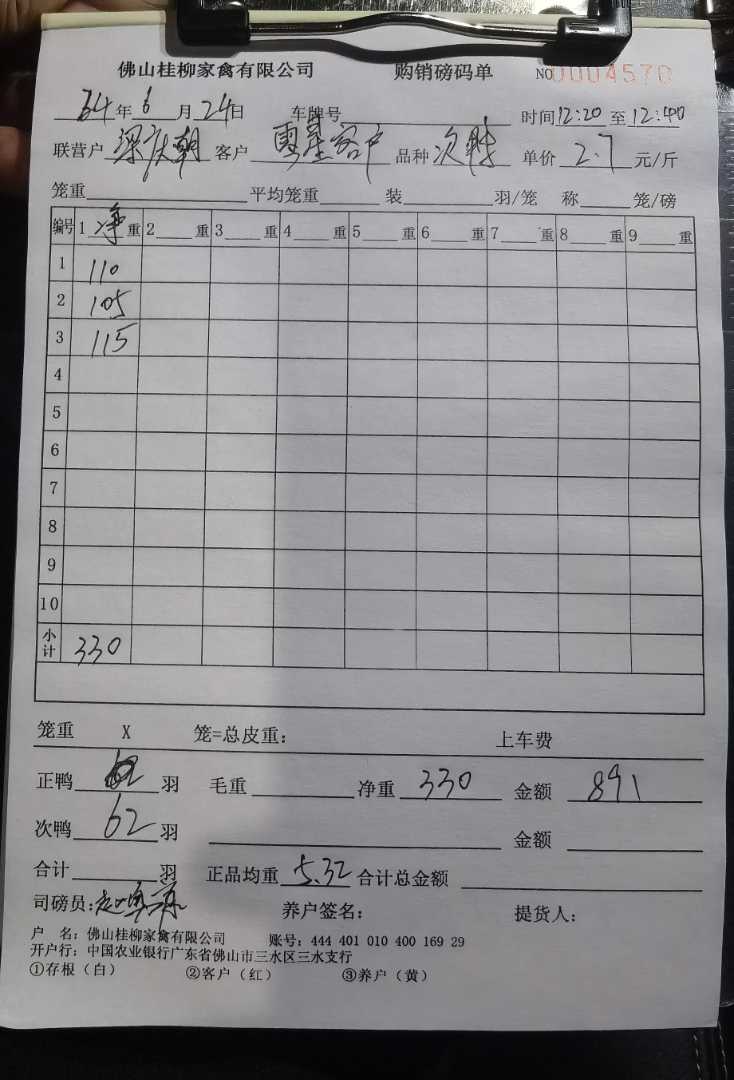 佛山桂柳家禽有限公司 购销磅码单 NO 0004570
年 6 月 24日 车牌号 时间 12:20 至 12:40
联营户 梁庆朝 客户 零星客户 品种 次鸭 单价 2.7 元/斤
笼重 平均笼重 装 羽/笼 称 笼/磅
编号 1 净 重 2 重 3 重 4 重 5 重 6 重 7 重 8 重 9 重
1 110
2 105
3 115
4
5
6
7
8
9
10
小计 330
笼重 X 笼=总皮重： 上车费
正鸭 羽 毛重 净重 330 金额 891
次鸭 62 羽 金额
合计 羽 正品均重 5.32 合计总金额
司磅员： 养户签名： 提货人：
户 名：佛山桂柳家禽有限公司 账号：444 401 010 400 169 29
开户行：中国农业银行广东省佛山市三水区三水支行
①存根（白） ②客户（红） ③养户（黄）